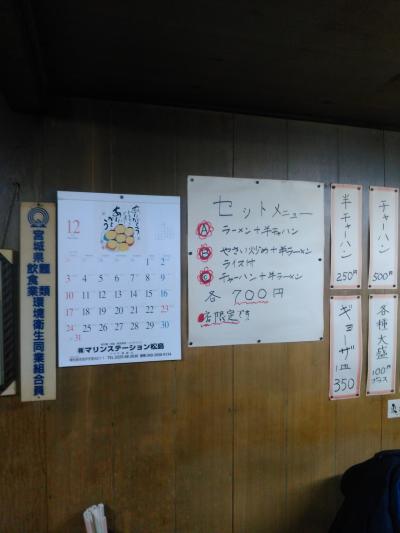 宮城県麺類
飲食業環境衛生同業組合員
12
1 2
3 4 5 6 7 8 9
10 11 12 13 14 15 16
17 18 19 20 21 22 23
24 25 26 27 28 29 30
31
㈱マリンステーション松島
セットメニュー
A ラーメン+半チャーハン
B やさい炒め+半ラーメン
ライス付
C チャーハン+半ラーメン
各 700円
店限定です
半チャーハン
250円
チャーハン
500円
ギョーザ一皿
350
各種大盛
100円
プラス